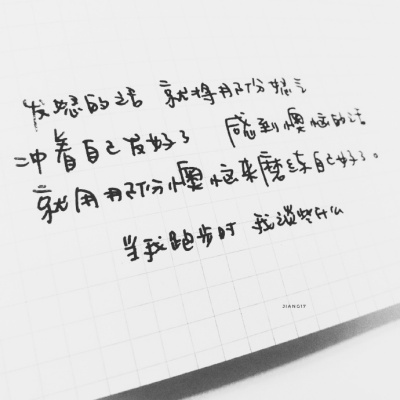 发怒的话 就将那份怒气
冲着自己发好了 感到懊恼的话
就用那份懊恼来磨练自己好了。
当我跑步时 我谈些什么
JIANGIY